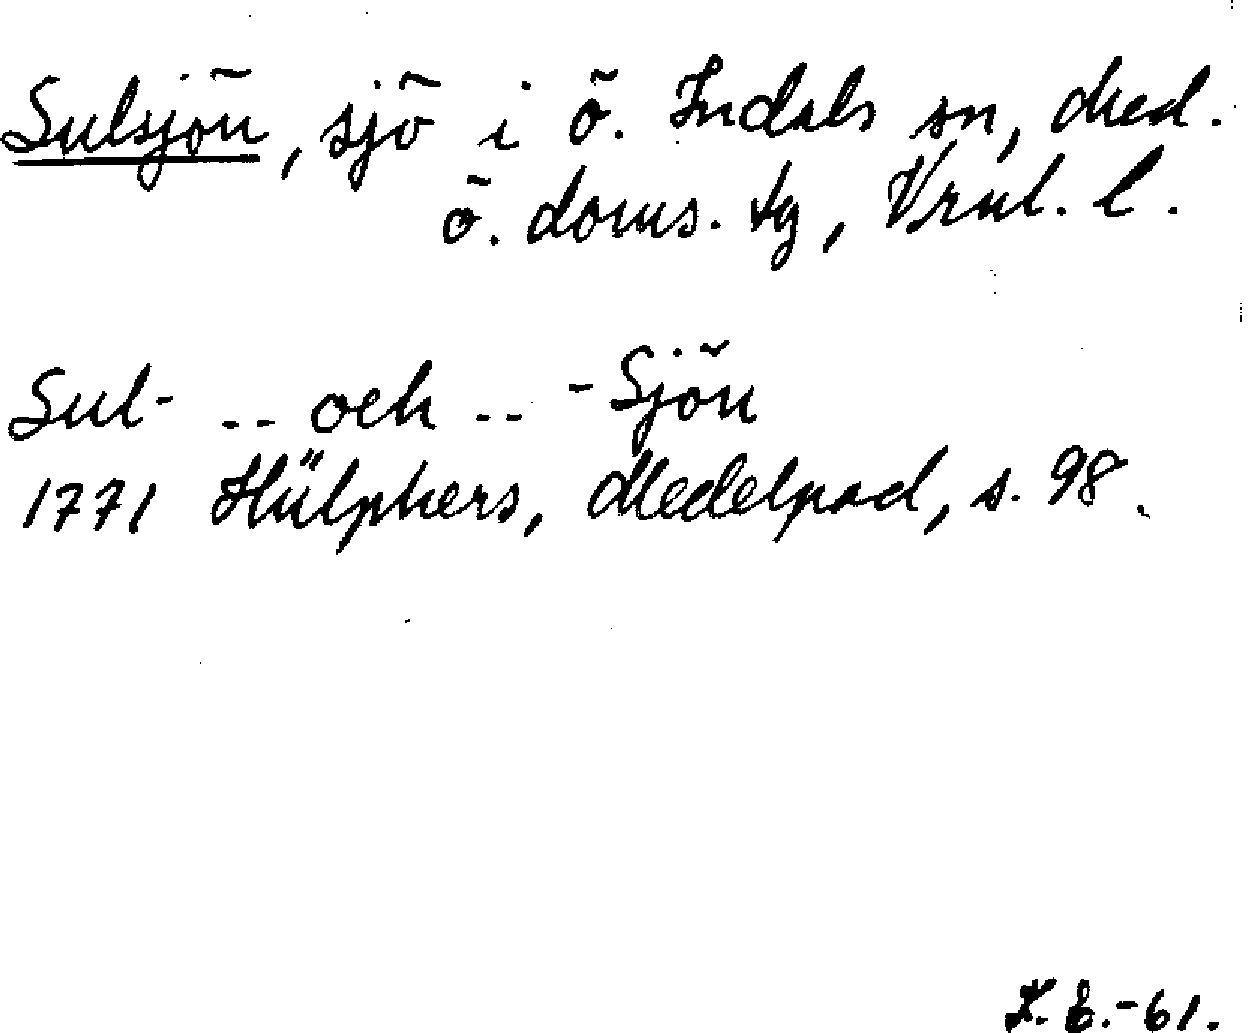 Sulsjön, sjö i ö. Indals sn, Med.
ö. doms. tg, Vrnl. l.
Sul- -- och -- -Sjön
1771 Hülphers, Medelpad, s. 98.
K. E.-61.